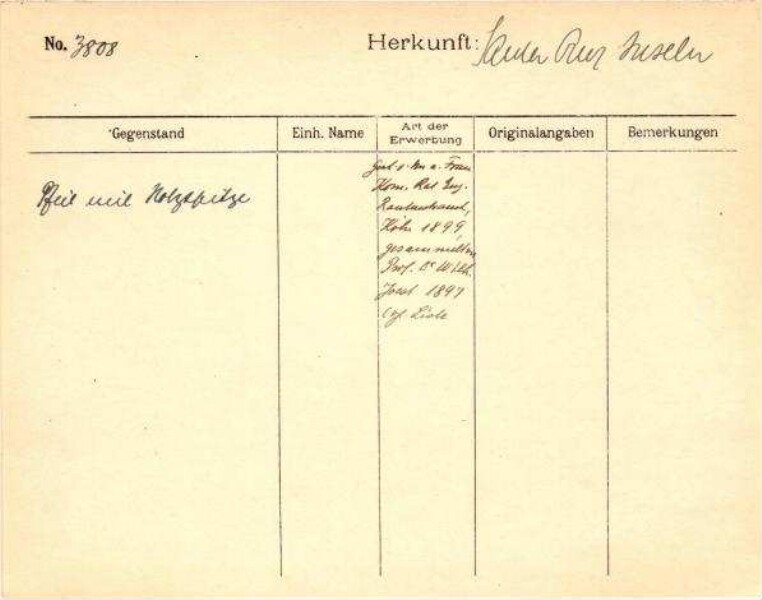 No. 3808
Herkunft: Santa Cruz Inseln
Gegenstand
Einh. Name
Art der Erwerbung
Originalangaben
Bemerkungen
Pfeil mit Holzspitze
Frau
Kom. Rat Eug.
Rautenstrauch,
Köln 1899,
gesammelt von
Prof. Dr Wilh.
Joest 1897
cf Liste